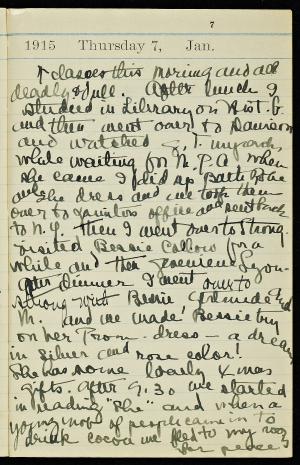 7
1915 Thursday 7, Jan.
classes this morning and all
deadly dull. After lunch I
studied in Library on Hist. 6.
and then went over to
and watched
while waiting for N. P. A. when
she came I
and she dress and we took them
over to office and sent back
to N.Y. then I went over to Strong
visited Bessie for a
while and then Genevieve Lyon.
After Dinner I went over to
Strong with Bessie and
M. and we made Bessie try
on her Prom. dress - a dream
in silver and rose color!
She has some lovely Xmas
gifts. After 9.30 we started
in reading "She" and when a
young mob of people came in to
drink cocoa we fled to my room
for peace